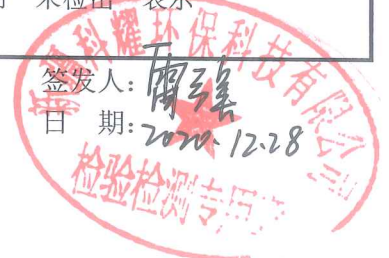 未检出 表示
签发人:
日 期: 2020.12.28
新疆科耀环保科技有限公司
检验检测专用章